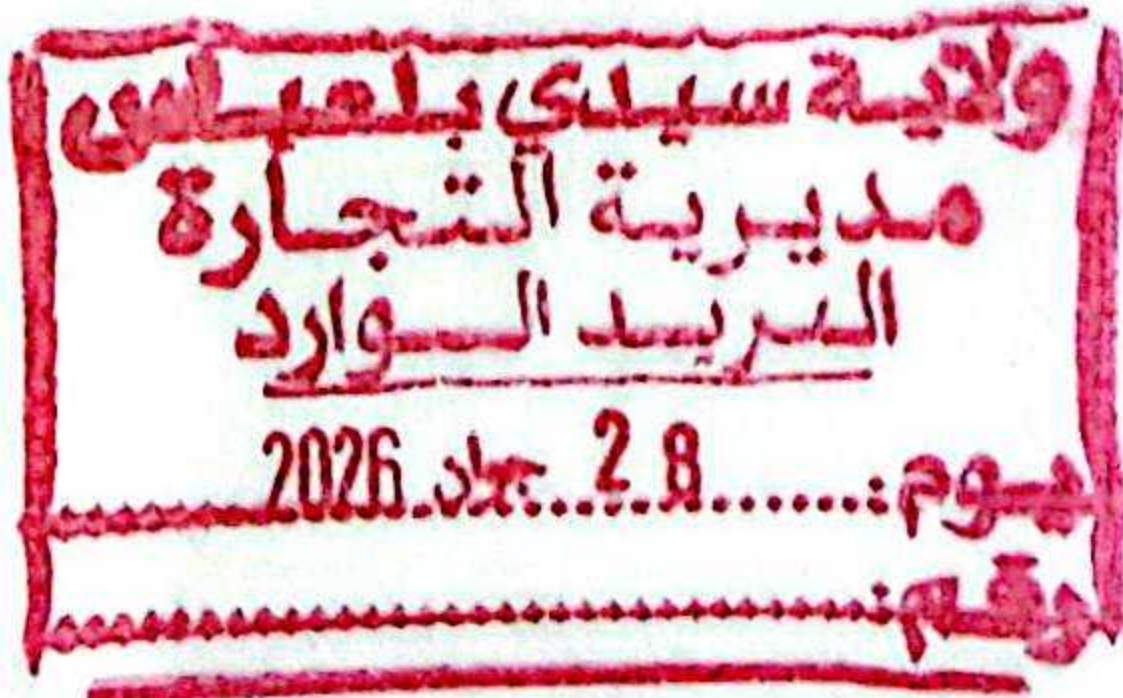 ولاية سيدي بلعباس
مديرية التجارة
البريد الوارد
يوم: 28 جوان 2026
رقم: